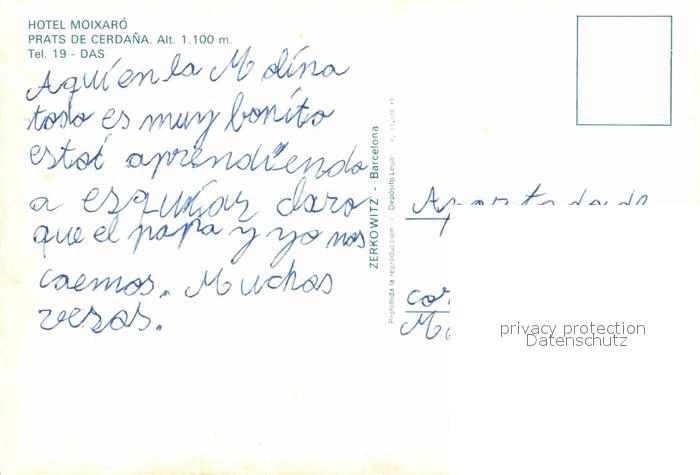 HOTEL MOIXARÓ
PRATS DE CERDAÑA. Alt. 1.100 m.
Tel. 19 - DAS
Aquí en la Molina
todo es muy bonito
estoi aprendiendo
a esquiar claro
que el papa y yo nos
caemos. Muchos
vesos.
ZERKOWITZ - Barcelona
Prohibida la reproducción - Depósito Legal
Apartado de
privacy protection
Datenschutz